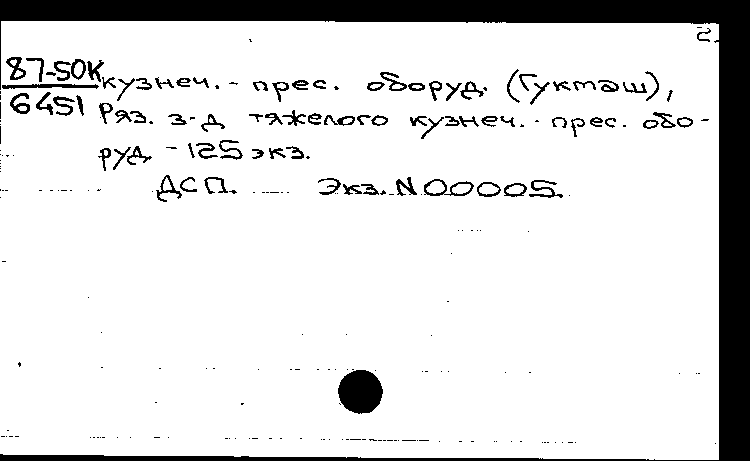 2.
87-50К кузнеч. - прес. оборуд. (Гукташ),
6451 Ряз. з-д тяжелого кузнеч. - прес. обо-
руд. - 125 экз.
ДСП. Экз. N 00005.